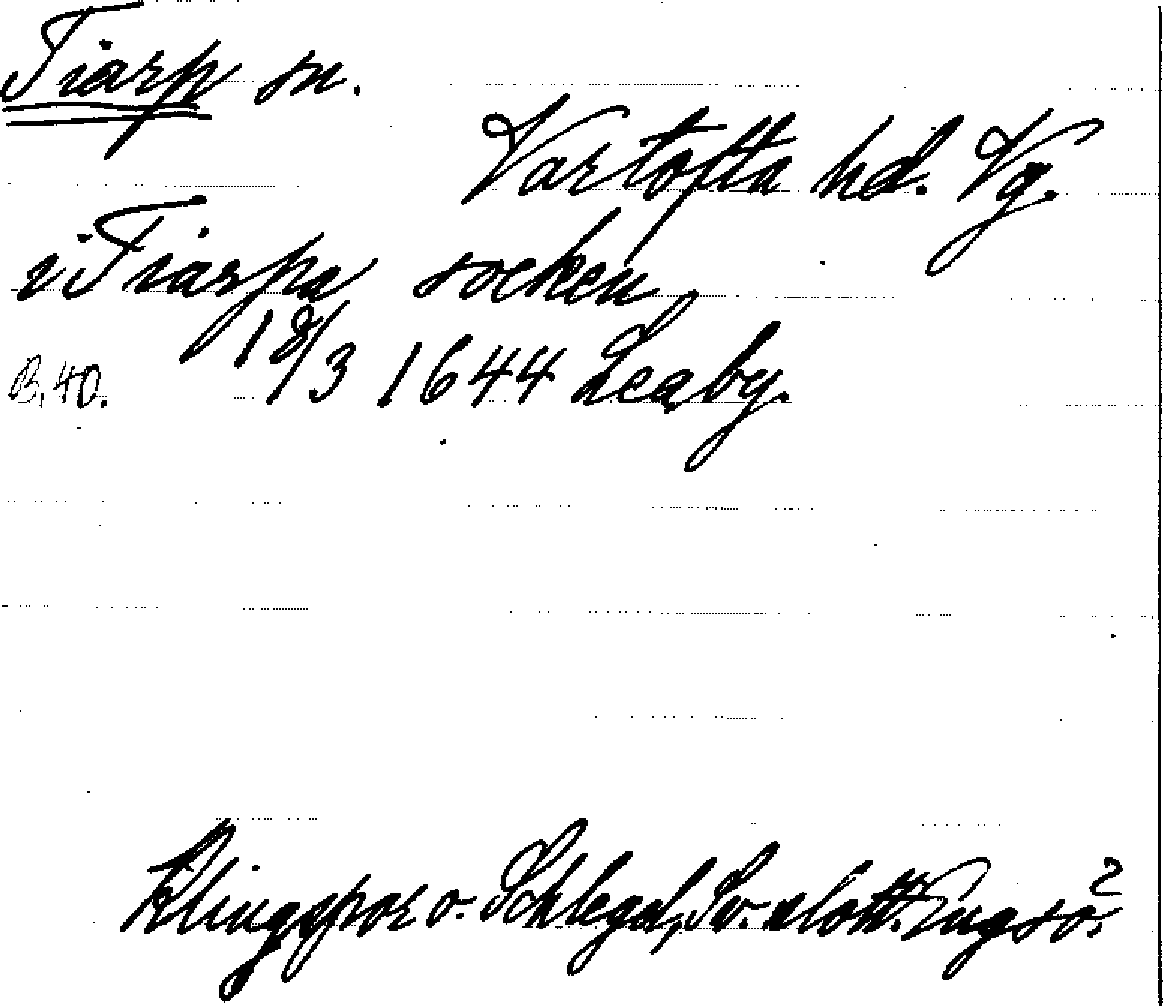 Tiarp sn.
Vartofta hd. Vg.
i Tiarpa socken
18/3 1644 Leaby.
B. 40.
Klingspor o. Schlegel, Sv. slott. Engsö.